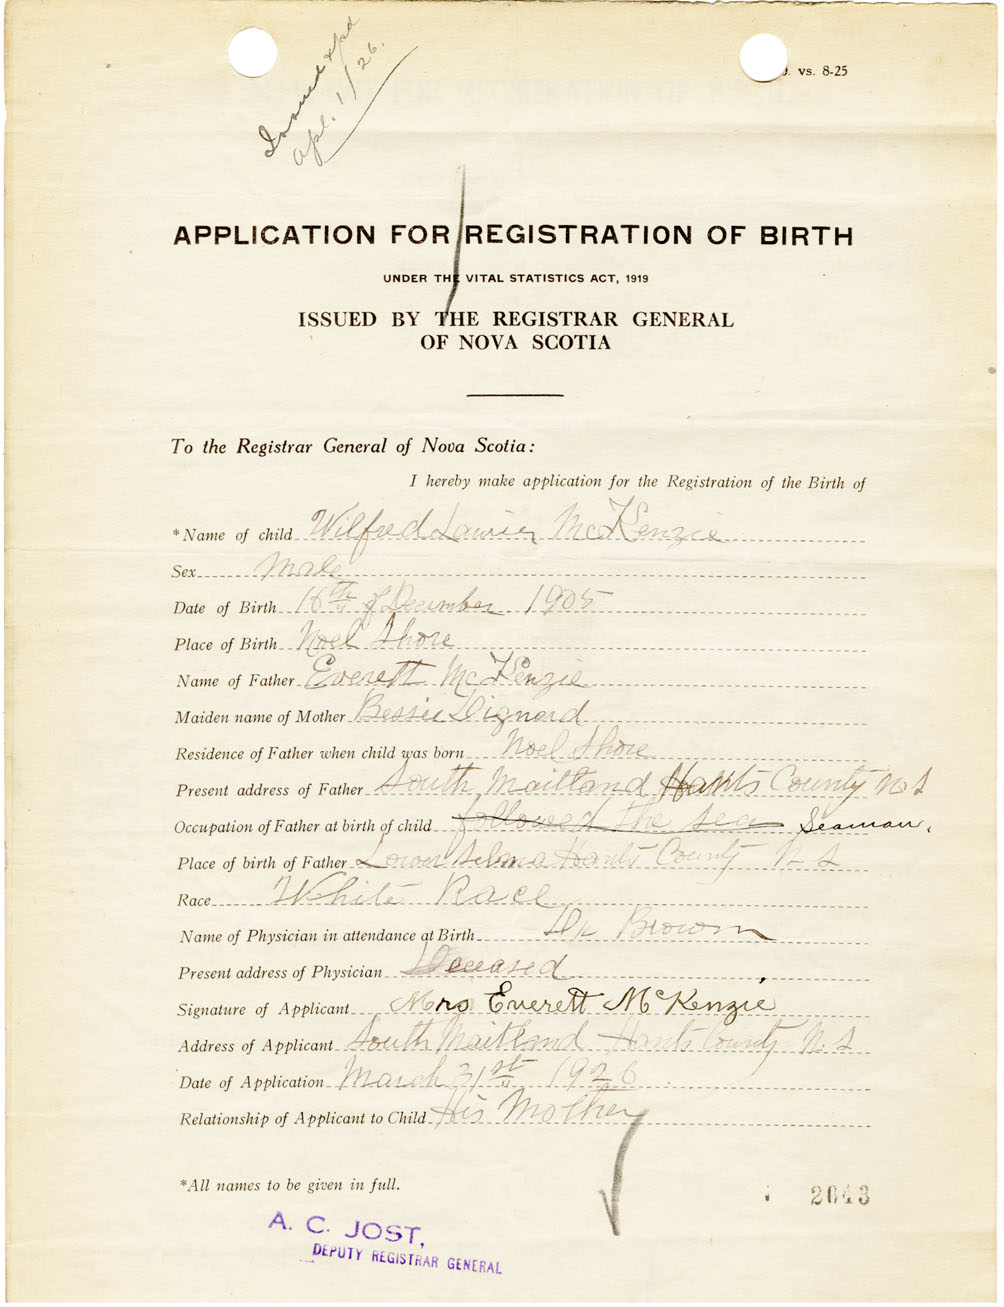 Issued & pd
Apl. 1/26.
. vs. 8-25
APPLICATION FOR REGISTRATION OF BIRTH
UNDER THE VITAL STATISTICS ACT, 1919
ISSUED BY THE REGISTRAR GENERAL
OF NOVA SCOTIA
To the Registrar General of Nova Scotia:
I hereby make application for the Registration of the Birth of
*Name of child Wilfred Laurier McKenzie
Sex Male
Date of Birth 16th of December 1905
Place of Birth Noel Shore
Name of Father Everett McKenzie
Maiden name of Mother Bessie Dignard
Residence of Father when child was born Noel Shore
Present address of Father South Maitland Hants County N S
Occupation of Father at birth of child followed the sea Seaman.
Place of birth of Father Lower Selma Hants County N S
Race White Race
Name of Physician in attendance at Birth Dr Brown
Present address of Physician Deceased
Signature of Applicant Mrs Everett McKenzie
Address of Applicant South Maitland Hants County N. S
Date of Application March 31st 1926
Relationship of Applicant to Child His Mother
*All names to be given in full.
2043
A. C. JOST,
DEPUTY REGISTRAR GENERAL